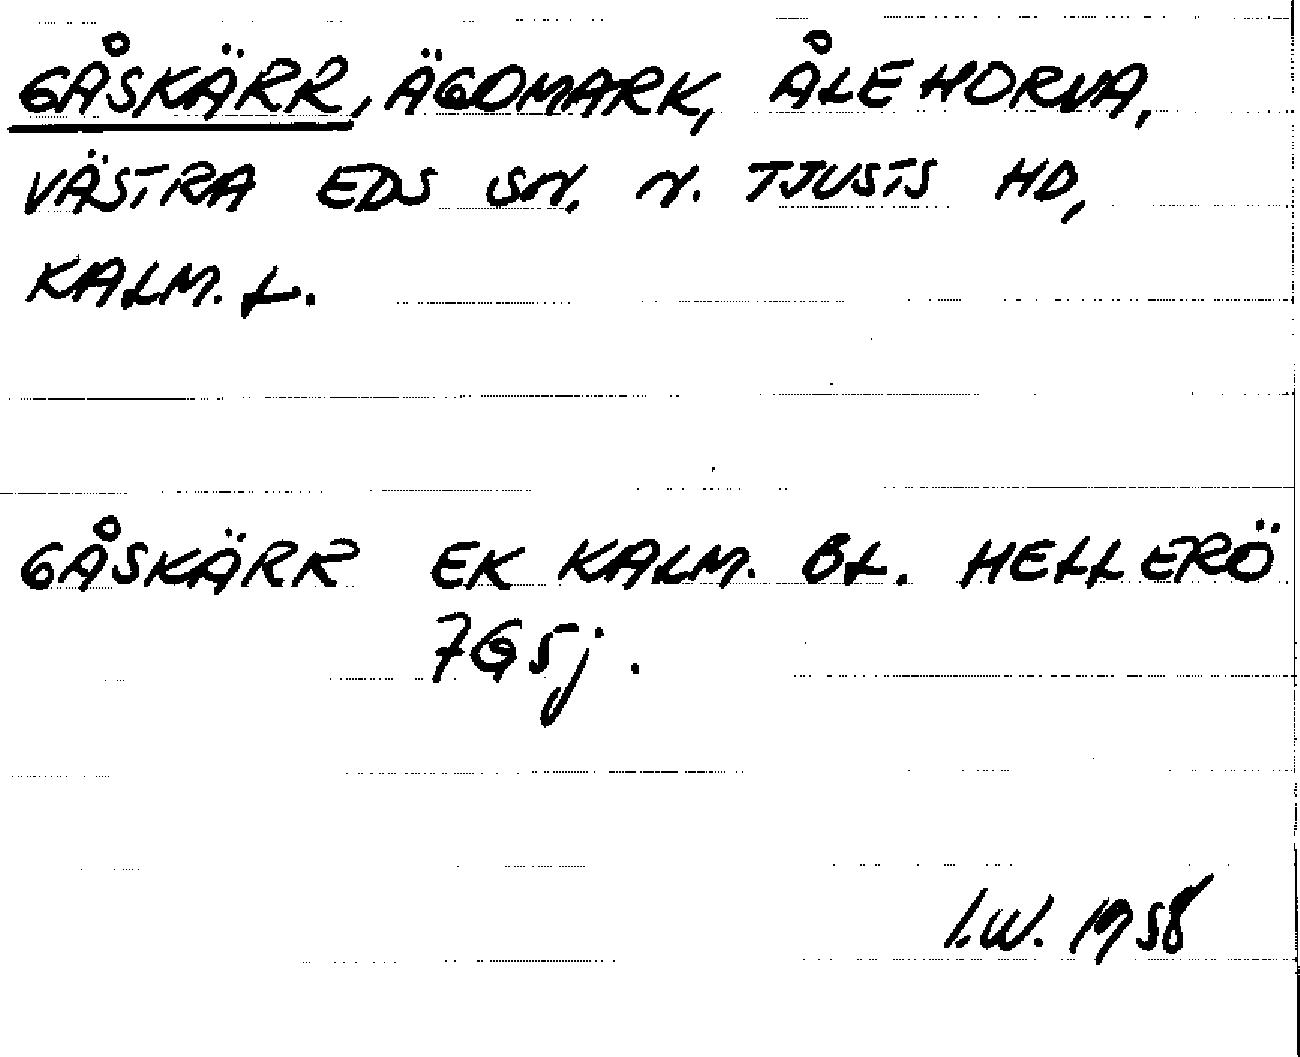 GÅSKÄRR, ÄGOMARK, ÅLEHORVA,
VÄSTRA EDS SN, N. TJUSTS HD,
KALM. L.
GÅSKÄRR EK KALM. BL. HELLERÖ
7G5j.
I.W. 1958